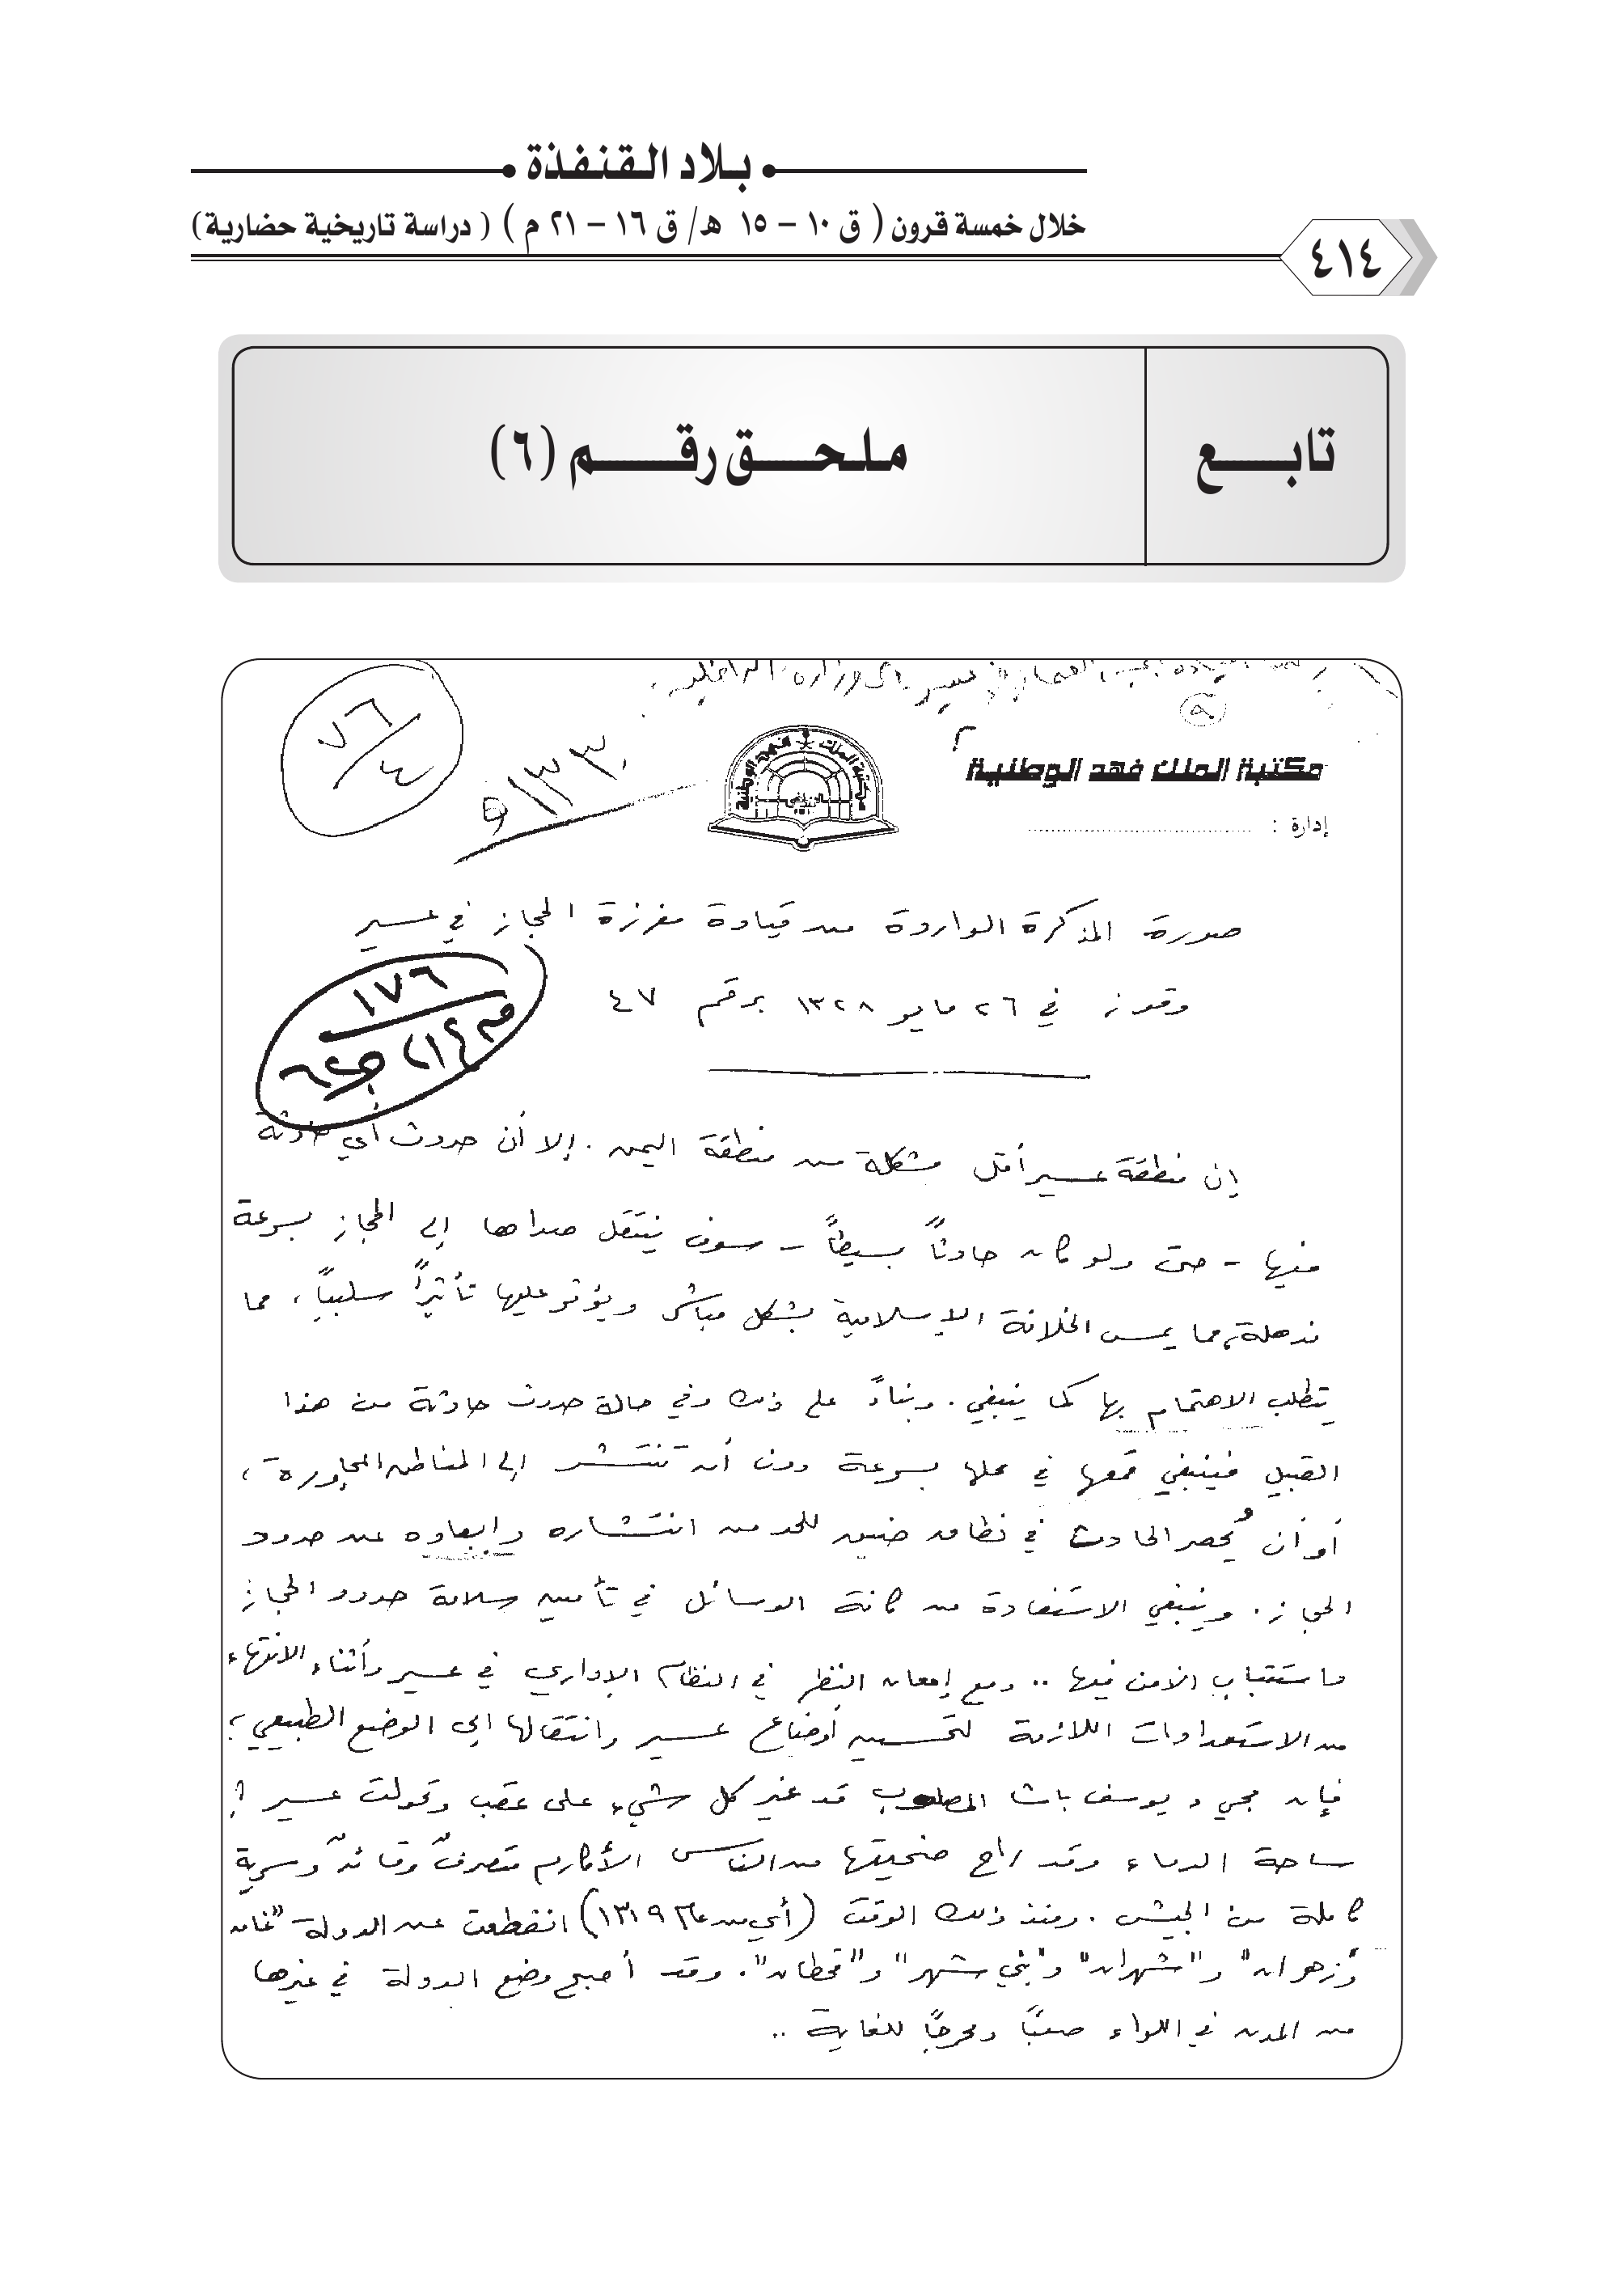 بلاد القنفذة
خلال خمسة قرون ( ق ١٠ – ١٥ هـ/ ق ١٦ – ٢١ م ) ( دراسة تاريخية حضارية)
٤١٤
تابع
ملحق رقم (٦)
عسير إلى وزارة الداخلية
٧٦/٤
٩١٣٣
مكتبة الملك فهد الوطنية
إدارة :
صورة المذكرة الواردة من قيادة مفرزة الحجاز في عسير
١٧٦
في ٢٦ مايو ١٣٢٨ برقم ٤٧
إن منطقة عسير أقل مشكلة من منطقة اليمن . إلا أن حدوث أي حادثة
فيها - حتى ولو كان حادثاً بسيطاً - سوف ينتقل صداها إلى الحجاز بسرعة
مذهلة، مما يمس الخلافة الإسلامية بشكل مباشر ويؤثر عليها تأثيراً سلبياً، مما
يتطلب الاهتمام بها كما ينبغي . وبناءً على ذلك وفي حالة حدوث حادثة من هذا
القبيل فينبغي قمعها في محلها بسرعة دون أن تنتشر إلى المناطق المجاورة ،
أو أن يُحصر الحادث في نطاق ضيق للحد من انتشاره وإبعاده عن حدود
الحجاز . وينبغي الاستفادة من كافة الوسائل في تأمين سلامة حدود الحجاز
واستتباب الأمن فيها .. ومع إمعان النظر في النظام الإداري في عسير وأثناء الانتهاء
من الاستعدادات اللازمة لتحسين أوضاع عسير وانتقالها إلى الوضع الطبيعي ؛
فإن مجيء يوسف باشا قد غير كل شيء على عقب وتحولت عسير إلى
ساحة الدماء وقد راح ضحيتها من الناس الأكارم متصرفٌ وقائدٌ وسرية
كاملة من الجيش . ومنذ ذلك الوقت (أي من عام ١٣١٩) انقطعت عن الدولة "غامد
وزهران" و"شهران" و"بني شهر" و"قحطان" . وقد أصبح وضع الدولة في غيرها
من المدن في اللواء صعباً ومحرجاً للغاية ..